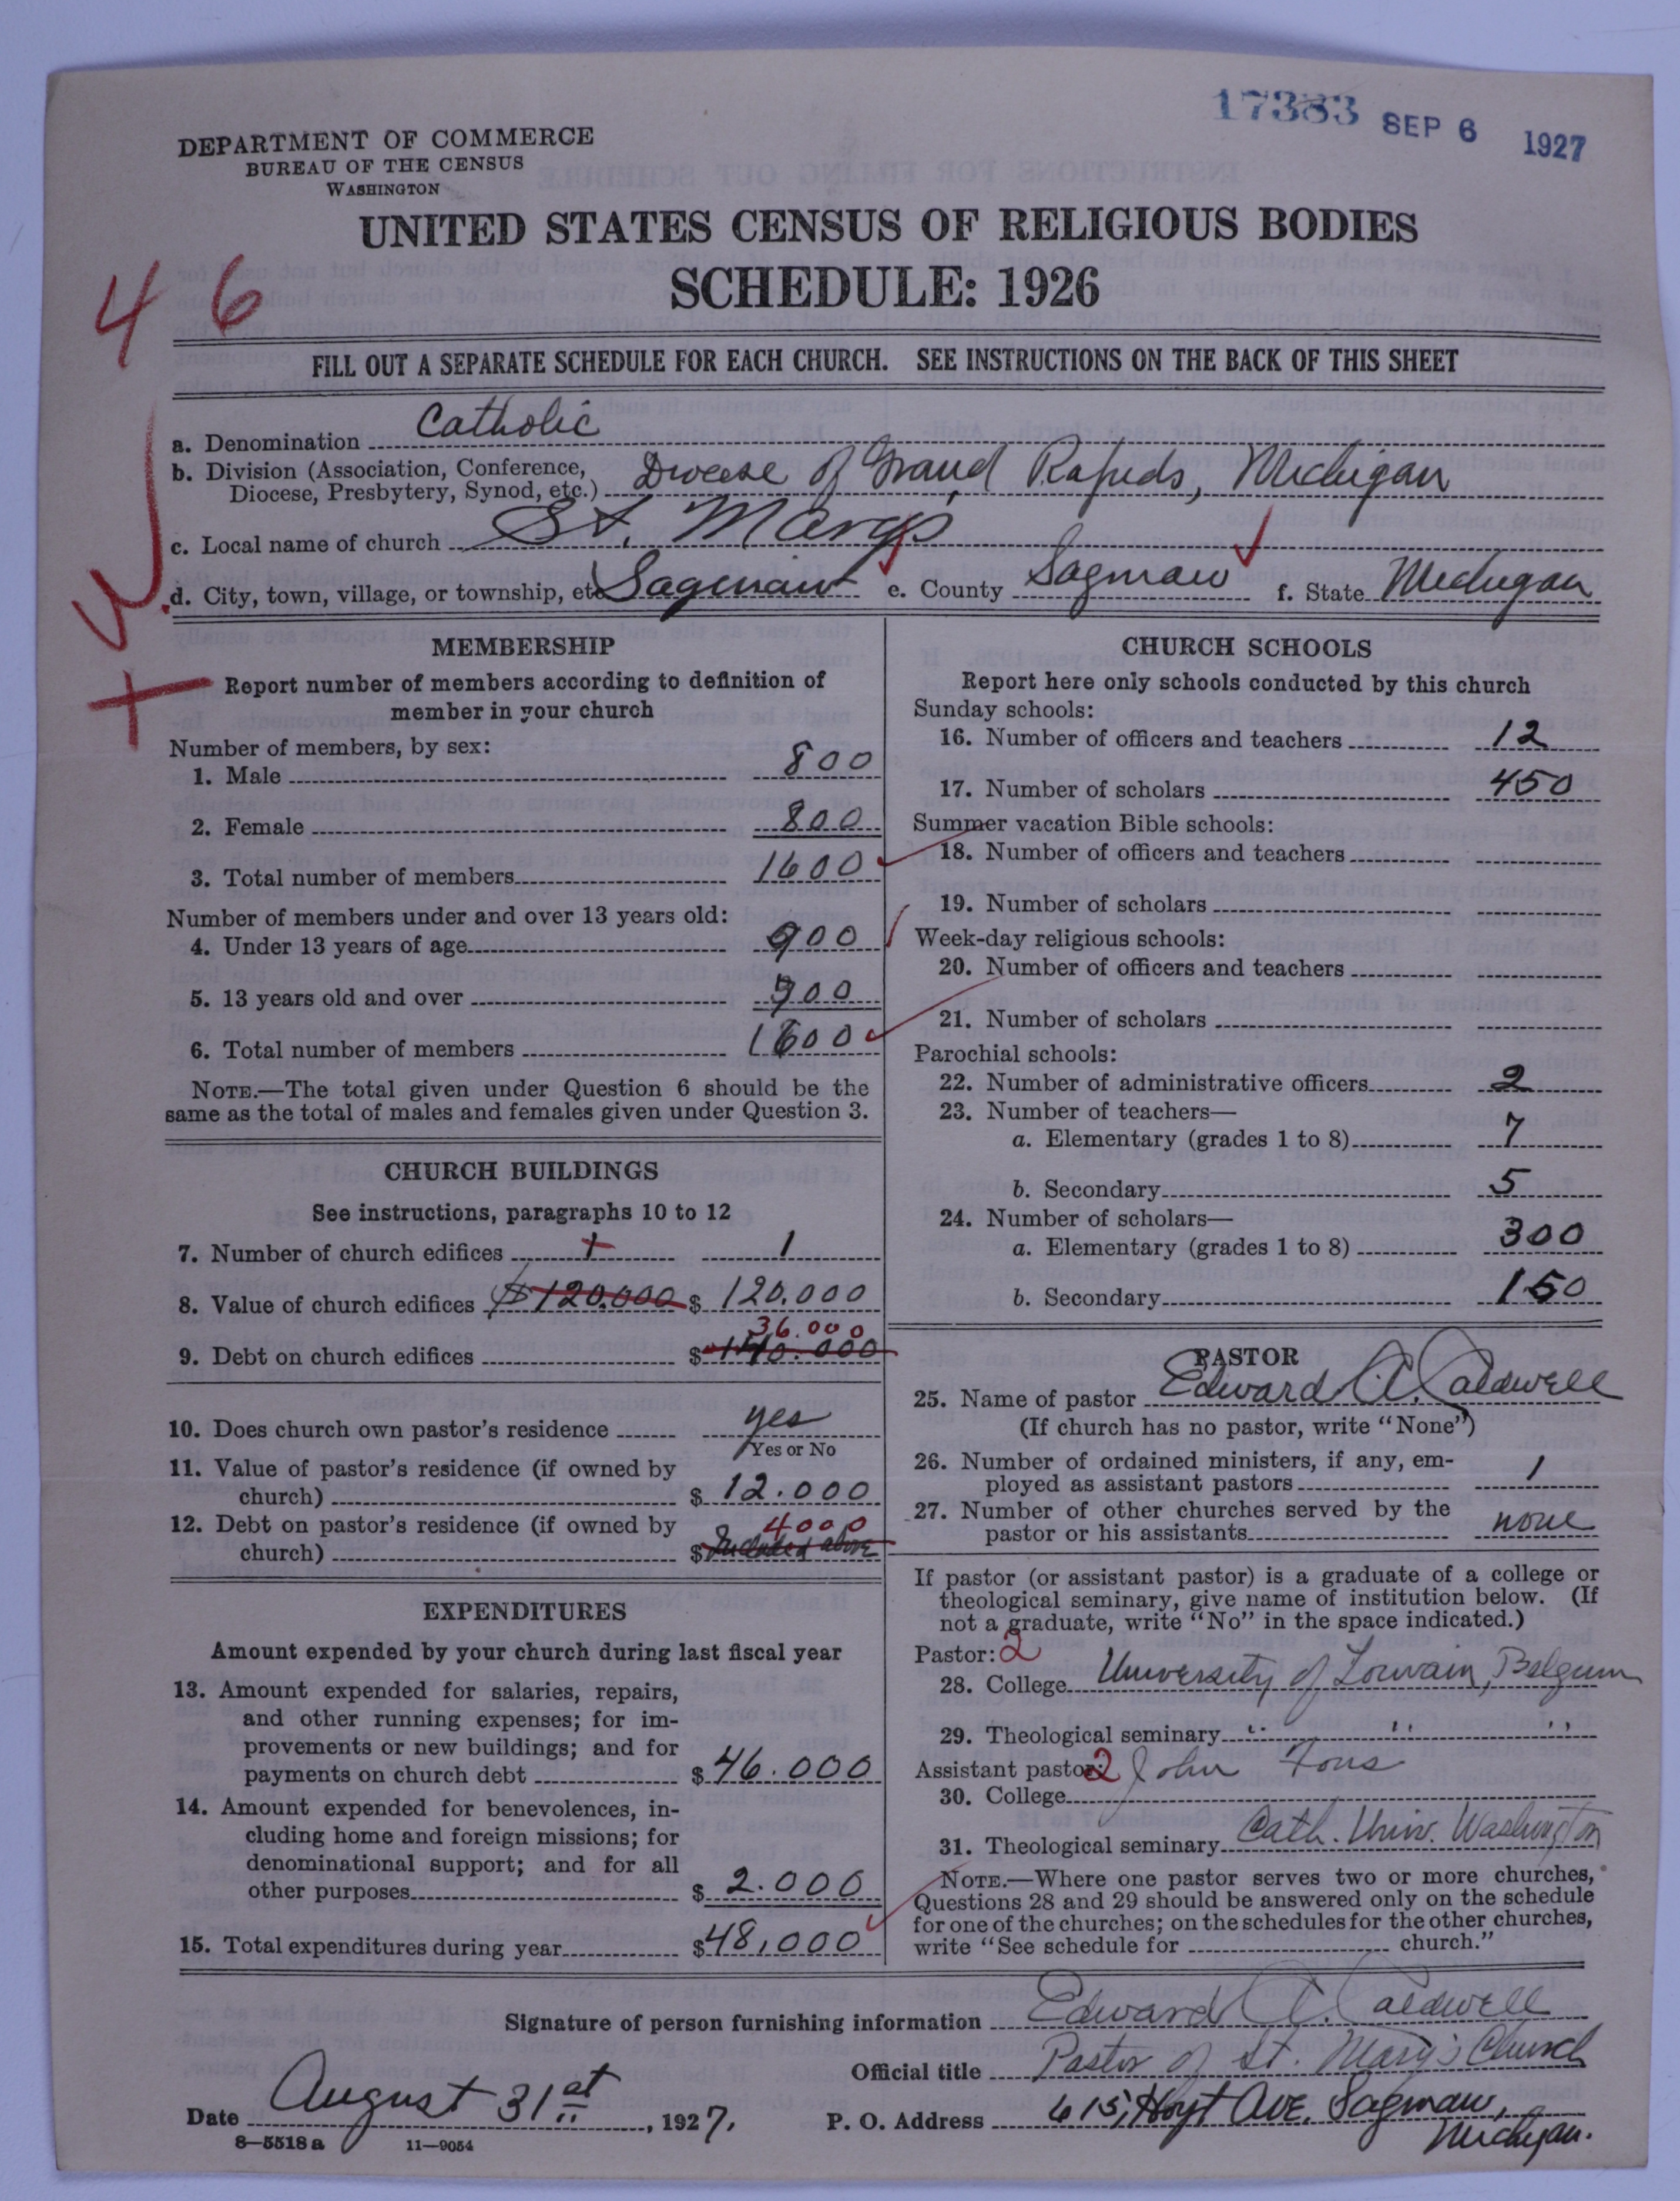 17383 SEP 6 1927
DEPARTMENT OF COMMERCE
BUREAU OF THE CENSUS
WASHINGTON
UNITED STATES CENSUS OF RELIGIOUS BODIES
SCHEDULE: 1926
46
FILL OUT A SEPARATE SCHEDULE FOR EACH CHURCH. SEE INSTRUCTIONS ON THE BACK OF THIS SHEET
a. Denomination Catholic
b. Division (Association, Conference,
Diocese, Presbytery, Synod, etc.) Diocese of Grand Rapids, Michigan
c. Local name of church St. Marys
d. City, town, village, or township, etc Saginaw e. County Saginaw f. State Michigan
MEMBERSHIP
Report number of members according to definition of
member in your church
Number of members, by sex:
1. Male 800
2. Female 800
3. Total number of members 1600
Number of members under and over 13 years old:
4. Under 13 years of age 900
5. 13 years old and over 900
6. Total number of members 1600
NOTE.—The total given under Question 6 should be the
same as the total of males and females given under Question 3.
CHURCH BUILDINGS
See instructions, paragraphs 10 to 12
7. Number of church edifices 1 1
8. Value of church edifices $120.000 $ 120.000
36.000
9. Debt on church edifices $ 140.000
10. Does church own pastor's residence yes
Yes or No
11. Value of pastor's residence (if owned by
church) $ 12.000
12. Debt on pastor's residence (if owned by 4000
church) $ Included above
EXPENDITURES
Amount expended by your church during last fiscal year
13. Amount expended for salaries, repairs,
and other running expenses; for im-
provements or new buildings; and for
payments on church debt $ 46.000
14. Amount expended for benevolences, in-
cluding home and foreign missions; for
denominational support; and for all
other purposes $ 2.000
15. Total expenditures during year $48,000
CHURCH SCHOOLS
Report here only schools conducted by this church
Sunday schools:
16. Number of officers and teachers 12
17. Number of scholars 450
Summer vacation Bible schools:
18. Number of officers and teachers
19. Number of scholars
Week-day religious schools:
20. Number of officers and teachers
21. Number of scholars
Parochial schools:
22. Number of administrative officers 2
23. Number of teachers—
a. Elementary (grades 1 to 8) 7
b. Secondary 5
24. Number of scholars—
a. Elementary (grades 1 to 8) 300
b. Secondary 150
PASTOR
25. Name of pastor Edward A. Caldwell
(If church has no pastor, write "None")
26. Number of ordained ministers, if any, em-
ployed as assistant pastors 1
27. Number of other churches served by the
pastor or his assistants none
If pastor (or assistant pastor) is a graduate of a college or
theological seminary, give name of institution below. (If
not a graduate, write "No" in the space indicated.)
Pastor: 2
28. College University of Louvain, Belgium
29. Theological seminary " " "
Assistant pastor: 2 John
30. College
31. Theological seminary Cath. Univ. Washington
NOTE.—Where one pastor serves two or more churches,
Questions 28 and 29 should be answered only on the schedule
for one of the churches; on the schedules for the other churches,
write "See schedule for church."
Signature of person furnishing information Edward A. Caldwell
Official title Pastor of St. Mary's Church
Date August 31st, 1927. P. O. Address 615, Hoyt Ave, Saginaw,
Michigan.
8—5518a 11—9054